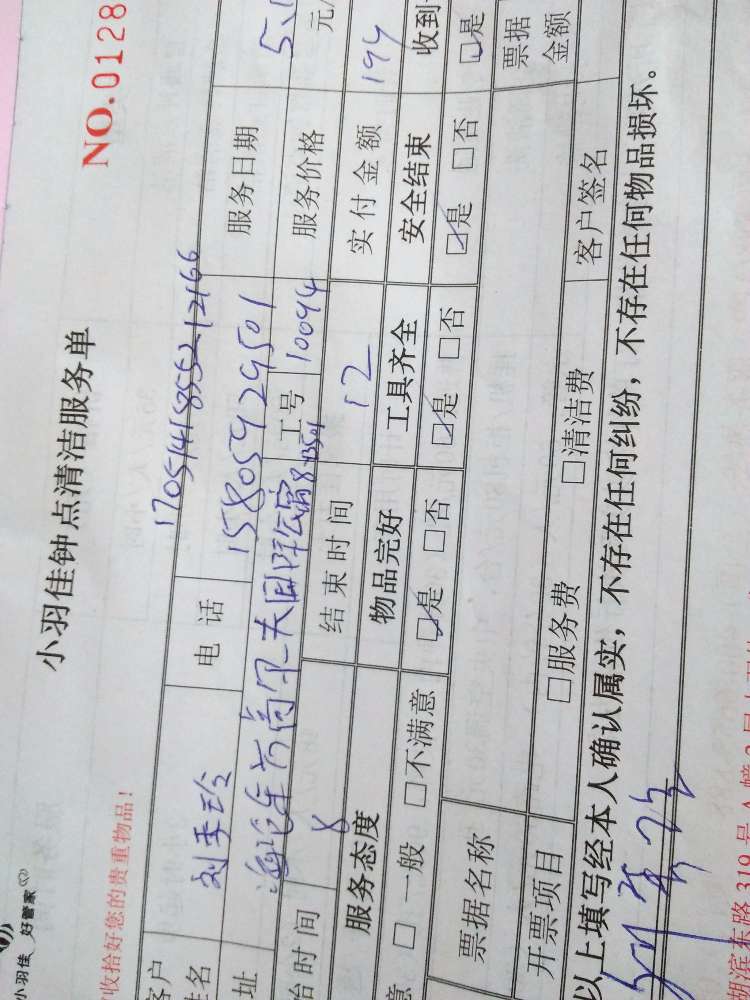 小羽佳 好管家
小羽佳钟点清洁服务单
NO.0128
收拾好您的贵重物品!
客户姓名 刘季玲 电话 15805929501 服务日期 5.1
17051418555212166
址 工号 10094 服务价格 元/
始时间 8 结束时间 12 实付金额 194
服务态度 物品完好 工具齐全 安全结束 收到
意 □ 一般 □不满意 ☑是 □否 ☑是 □否 ☑是 □否 ☑是
票据名称 票据金额
开票项目 □服务费 □清洁费 客户签名
以上填写经本人确认属实,不存在任何纠纷,不存在任何物品损坏。
湖滨东路 319 号 A 幢 2 层